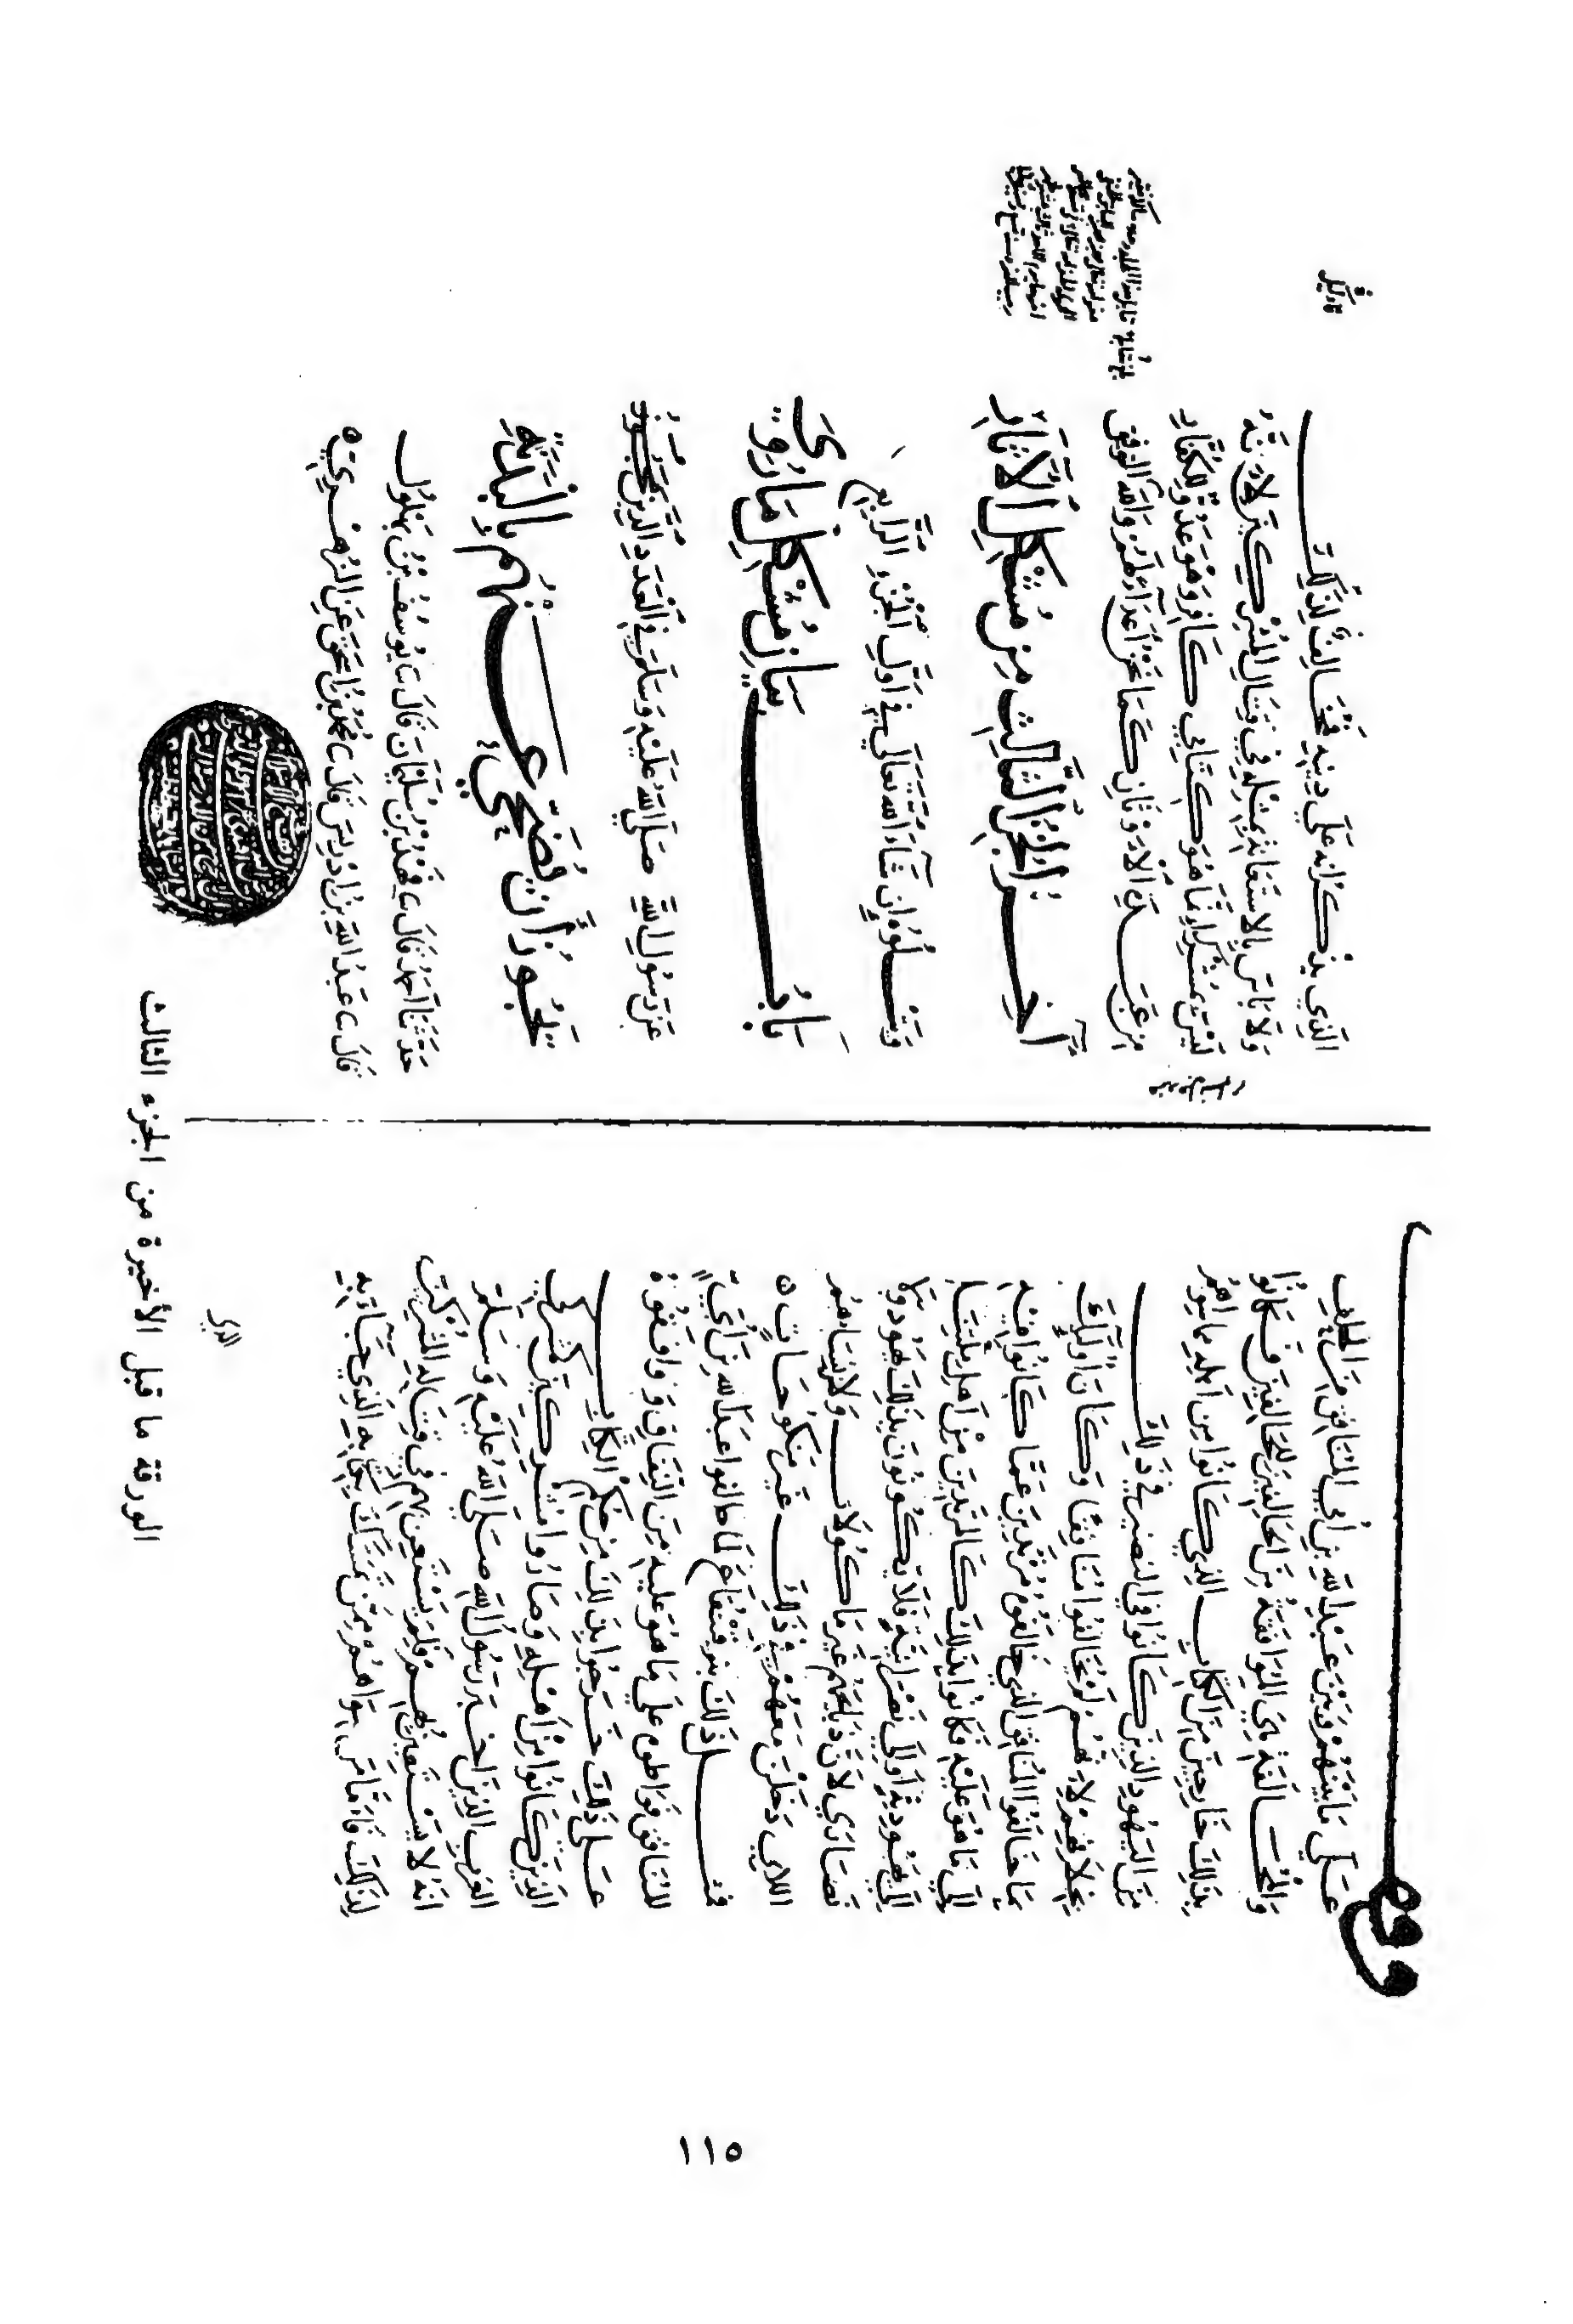 على ما بينهم وبين عبد الله بن أبي المنافق من الحلف
والمحالفة هي الموافقة من الحالفين للمحالفين فكانوا
بذلك خارجين من الكتاب الذي كانوا من أهله مما سواهم
من اليهود الذين كانوا في النضير في ذلك
بخلافهم لأنهم لم يخالفوا منافقا وكان أولئك
بما خالفوا المنافق الذي خالفوه مرتدين عما كانوا فيه
إلى ما هو عليه فكانوا بذلك كالمرتدين من أهل ملتنا
إلى يهودية أو إلى نصرانية فلا يكونون بذلك يهود ولا
نصارى لأن ذبائحهم غير مأكولات ولأن نساءهم
اللاتي دخلن معهم في ذلك غير منكوحات
فمثل ذلك بنو قينقاع لما حالفوا عبد الله بن أبي
المنافق فواطؤه على ما هو عليه من النفاق ووافقوه
على ذلك خرجوا بذلك من حكم أهل الكتاب
الذين كانوا من أهله وصاروا مشركين كمشركي
العرب الذين أخبر رسول الله صلى الله عليه وسلم
أنه لا يستعين بهم فلم يستعن بهم في قتاله المشركين
لذلك فأما من سواهم ممن تمسك بكتابه الذي جاءه به
الذي
الذي يذكر أنه على دينه فمخالف لذلك
ولا بأس بالاستعانة بمثله في قتال المشركين لأنه
ليس بمشرك إنما هو كتابي كافر وهو عدو للكفار
من عبدة الأوثان كما نحن أعداء لهم والله الموفق
آخر الجزء الثالث من مشكل الآثار
ويتلوه إن شاء الله تعالى في أول الجزء الرابع
باب بيان مشكل ما روي
عن رسول الله صلى الله عليه وسلم في العدد الذين يجوز
تجوز أن يضحي عنهم بالبدنة
حدثنا أحمد قال ثنا فهد بن سليمان قال ثنا يوسف بن بهلول
قال ثنا عبد الله بن إدريس قال ثنا محمد بن إسحق عن الزهري
الورقة ما قبل الأخيرة من الجزء الثالث
١١٥